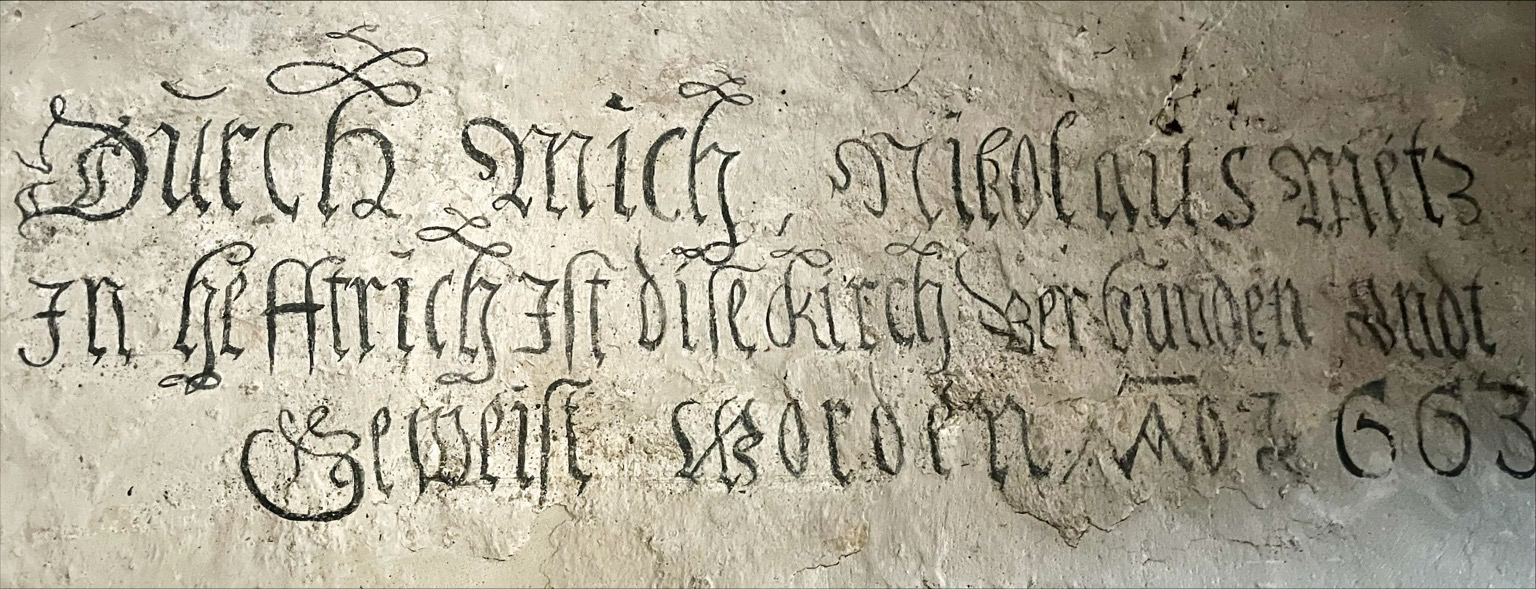 Durch Mich, Nikolaus Metz
In Heftrich Ist dise kirch Verbunden Vndt
Geweist Worden Ao 1663